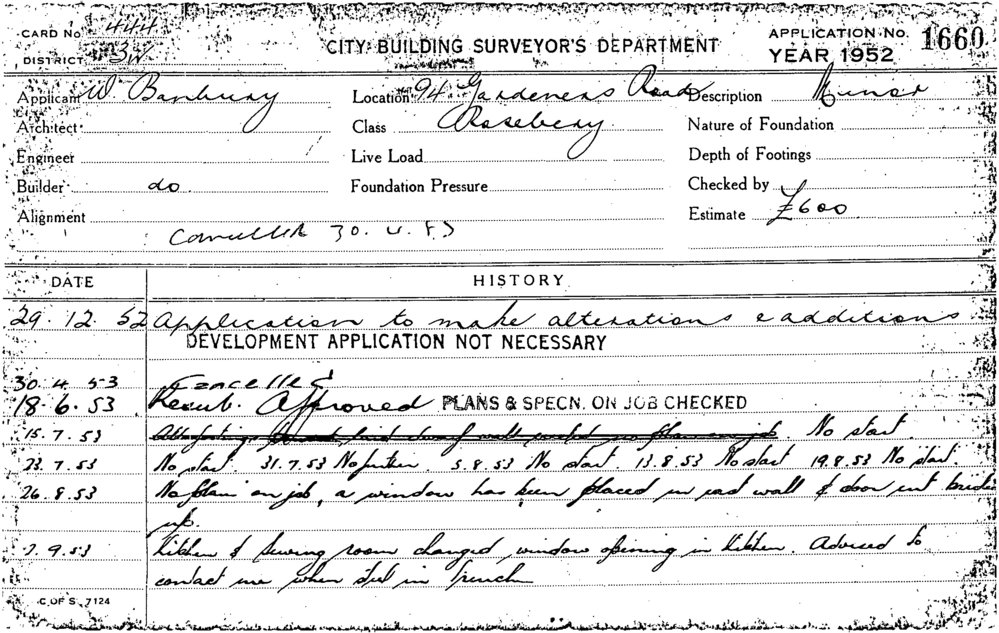 CARD No. 444
DISTRICT 3W
CITY BUILDING SURVEYOR'S DEPARTMENT
APPLICATION No. 1660
YEAR 1952
Applicant W Banbury
Location 94 Gardeners Road
Description Minor
Architect
Class Rosebery
Nature of Foundation
Engineer
Live Load
Depth of Footings
Builder do
Foundation Pressure
Checked by
Alignment
Estimate £600
Cancelled 30.4.53
DATE HISTORY
29.12.52 Application to make alterations & additions
DEVELOPMENT APPLICATION NOT NECESSARY
30.4.53 Cancelled
18.6.53 Resub. Approved PLANS & SPECN. ON JOB CHECKED
15.7.53 No start
23.7.53 No start 31.7.53 No further 5.8.53 No start 13.8.53 No start 19.8.53 No start
26.8.53 No plan on job, a window has been placed in wall & door
up.
7.9.53 Kitchen & Sewing room changed, window opening in kitchen. Advised to
contact me when in trench
C. OF S. 7124